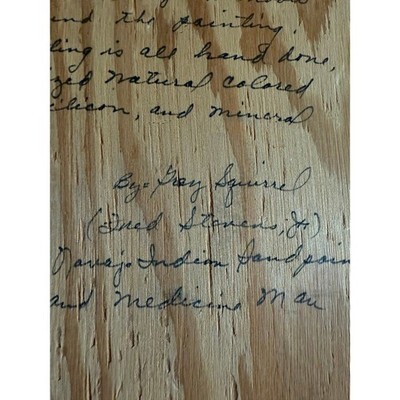 the painting.
ling is all hand done,
zed natural colored
ilicon, and mineral
By = Grey Squirrel
(Fred Stevens, Jr)
Navajo Indian Sandpain
and Medicine Man